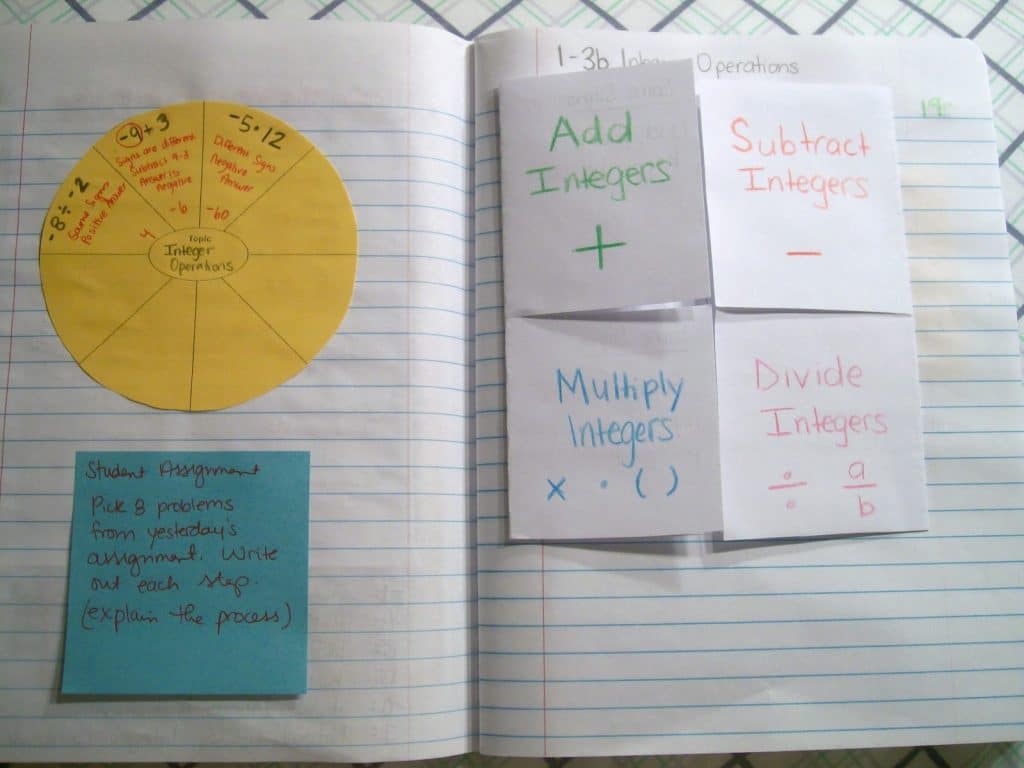 -8 ÷ -2
Same Signs
Positive Answer
4
-9 + 3
Signs are different
Subtract 9-3
Answer is
negative
-6
-5 • 12
Different Signs
negative
Answer
-60
Topic
Integer
Operations
Student Assignment
Pick 8 problems
from yesterday's
assignment. Write
out each step.
(explain the process)
1-3b Operations
Add
Integers
+
Subtract
Integers
−
Multiply
Integers
x • ( )
Divide
Integers
÷ a
b